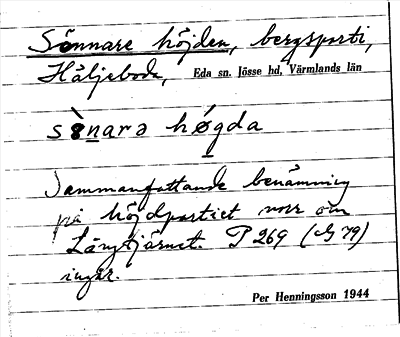 Sönnare höjden, bergsparti,
Håljeboda, Eda sn. Jösse hd, Värmlands län
sø̀narə hǿgda
Sammanfattande benämning
på höjdpartiet norr om
Långtjärnet. P 269 (G 79)
ingår.
Per Henningsson 1944